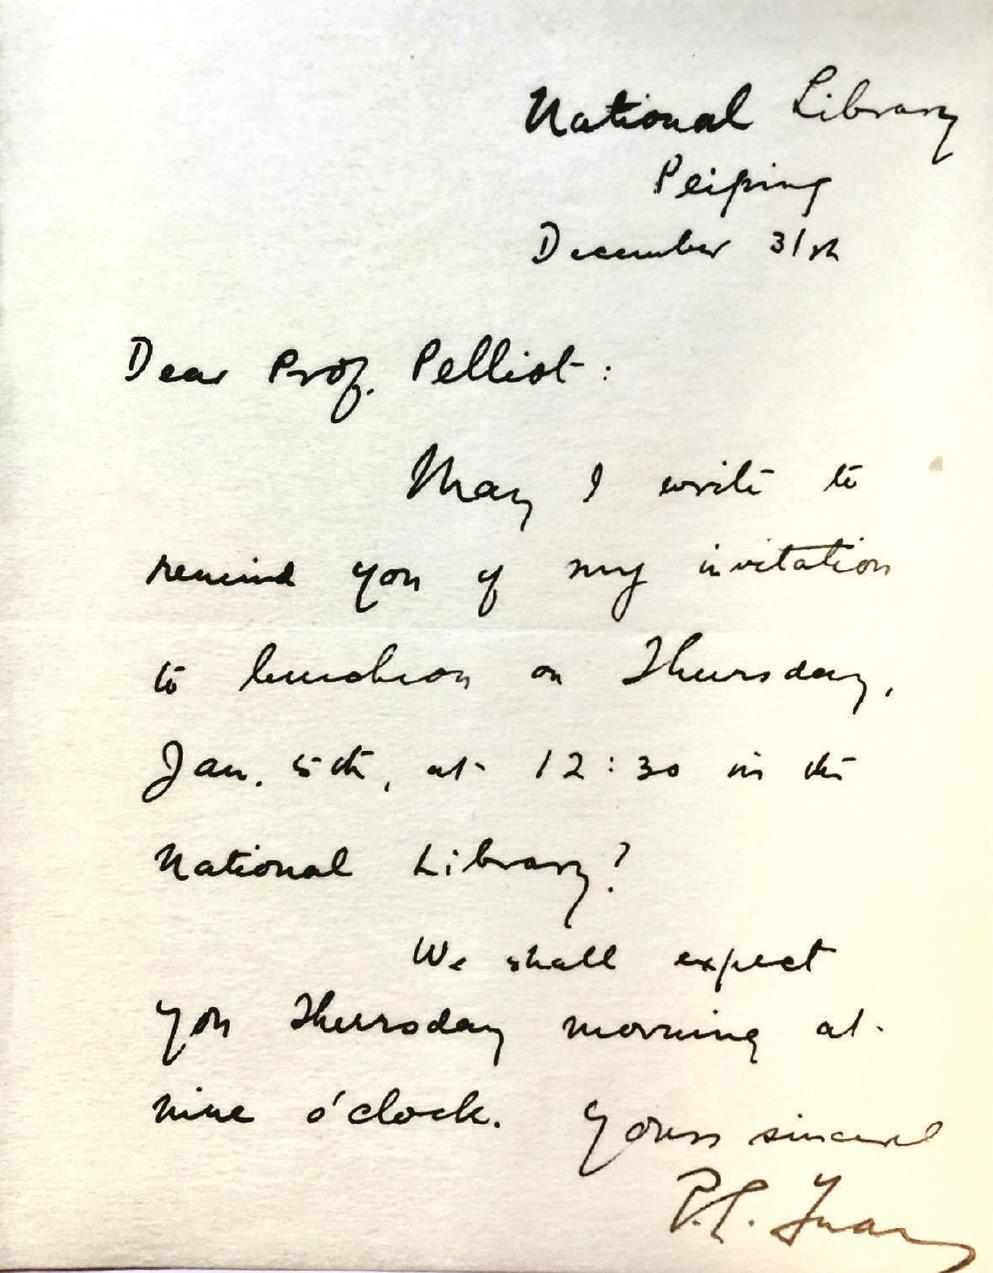 National Library
Peiping
December 31st
Dear Prof. Pelliot:
May I write to
remind you of my invitation
to luncheon on Thursday,
Jan. 5th, at 12:30 in the
National Library?
We shall expect
you Thursday morning at
nine o'clock. Yours sincerel